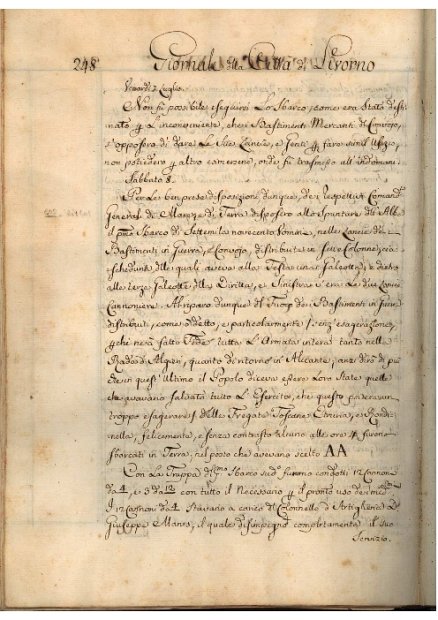 248 Giornale della Città di Livorno
Venerdì 7 Luglio
Non fù possibile eseguirsi lo sbarco, come era stato desti
nato p l'inconveniente, che i Bastimenti Mercanti di Convojo,
s'opposero di dare le Sue Lancie, e Genti p fare simil Ufizio,
non potiedero p altro can onde fù trasferito all'indomani
Sabbato 8.
Per le ben prese disposizioni dunque dei respettivi Comand.
Generali di Mare, e di Terra disposero allo spuntare dell'Alba
il pmo Sbarco di Settemila novecento Uomini, nelle Lancie di
Bastimenti in Guerra, e Convojo, distribuite in sette Colonne, cia
scheduna delle quali aveva alla Testa una Galeotta, e dietro
alle terze Galeotte della Diritta, e Sinistra v'era le due Lancie
Cannoniere. Al riparo dunque del Fuoco dei Bastimenti in
distribuiti, come s'è detto, e particolarmente senz'esagerazione,
p che ne sarà fatto Fede tutta l'Armata intera tanto nella
Rada d'Algeri, quanto di ritorno in Alicante, anzi dirò di più
che in quest'ultimo il Popolo diceva essere loro state quelle
che avevano salvato tutto l'Esercito, che questo pareva un
troppo esagerare delle Fregate Toscane Etruria, e Rondi-
nella, felicemente, e senza contrasto alcuno alle ore 4 furono
sbarcati in Terra, nel posto che avevano scelto AA
Con la Truppa del pmo sbarco sud. furono condotti 12 Cannone
da 4, e 3 da 12 con tutto il Necessario p il pronto uso dei med.
I 12 Cannoni da 4 stavano a carico del Colonnello d'Artiglieria D.
Giuseppe Manes, il quale disimpegnò completamente il suo
Servizio.